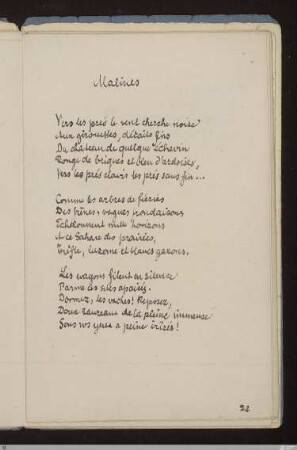 Malines
Vers les prés le vent cherche noise
Aux girouettes, détails fins
Du château de quelque échevin
Rouge de briques et bleu d'ardoises,
Vers les prés clairs les prés sans fin...
Comme les arbres de féeries
Des frênes, vagues frondaisons
Echelonnent mille horizons
A ce Sahara de prairies,
Trèfle, luzerne et blancs gazons.
Les wagons filent en silence
Parmi ces sites apaisés.
Dormez, les vaches! Reposez,
Doux taureaux de la plaine immense
Sous vos yeux à peine irisés!
22